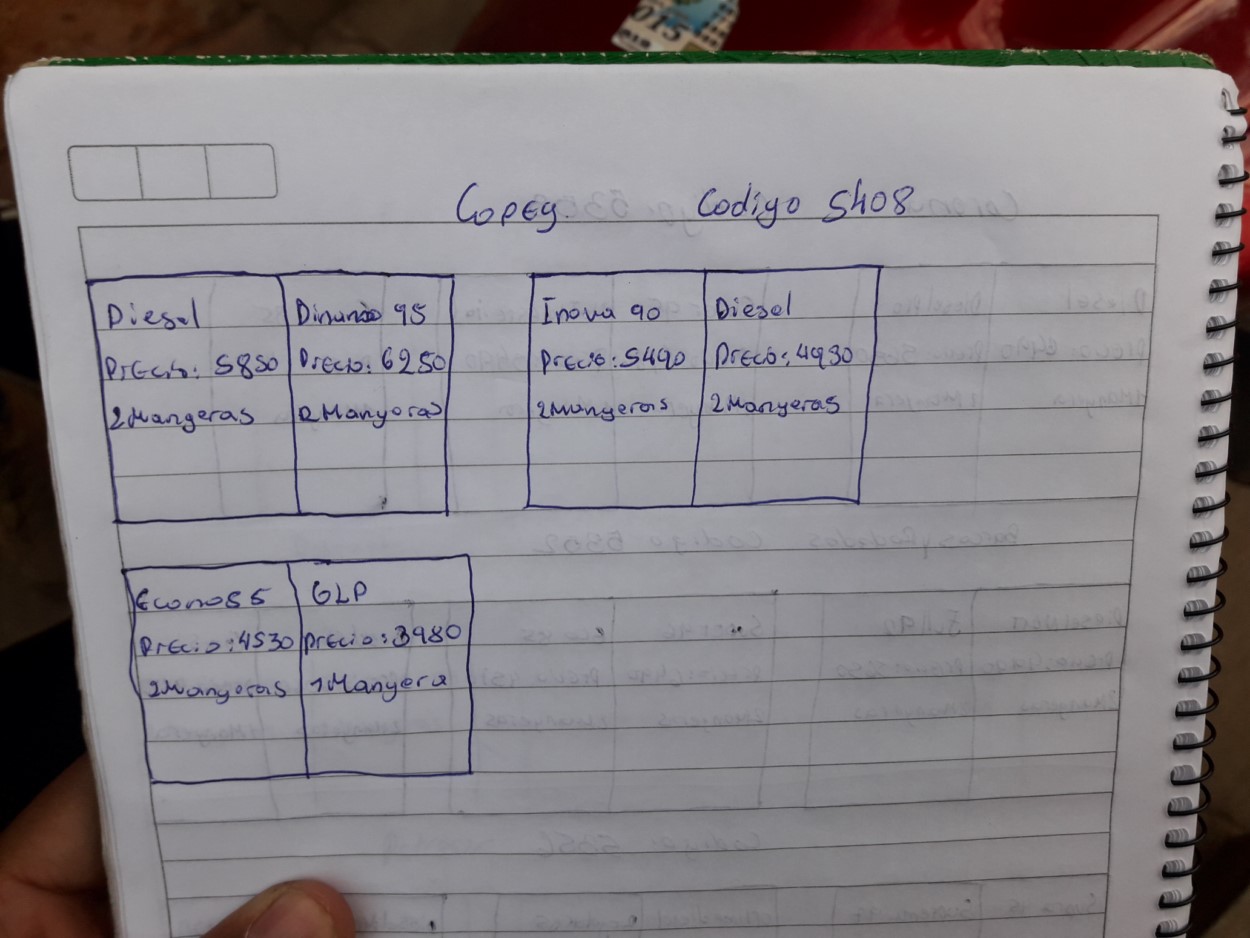 Copeg. Codigo 5408
Diesel
Precio: 5850
2 Mangeras
Dinamo 95
Precio: 6250
2 Mangeras
Inova 90
Precio: 5490
2 Mangeras
Diesel
Precio: 4930
2 Mangeras
Econo85
Precio: 4530
2 Mangeras
GLP
Precio: 3980
1 Mangera